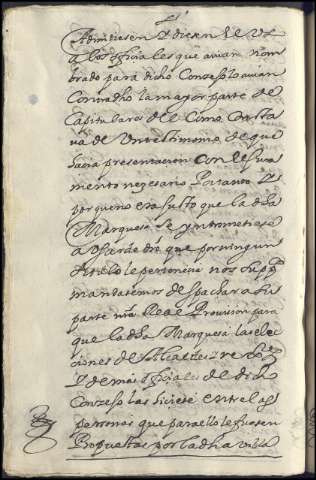 Admitiesen Y diesen el Uso
a los officiales que avian nom
brado para dicho Conzejo lo avian
Contradho la mayor parte de
Capitulares de el Como Consta
va de Un testimonio de que
hacia presentazion Con el Jura
mento nezesario Por tanto Y
porque no era justo que la dha
Marquesa se yntrometiese
a Usar de dro que por ningun
titulo le pertenecia nos suppco
mandasemos despachar a su
parte nra Real Provision para
que la dha Marquesa las elec
ciones de Alcaldes re
Y demas officiales de dho
Conzejo las hiciese entre las
personas que para ello le fuesen
Propuestas por la dha villa